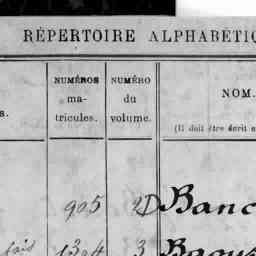 RÉPERTOIRE ALPHABÉTI
NUMÉROS
ma-
tricules.
NUMÉRO
du
volume.
NOM.
(Il doit être écrit
s.
905 2 Banc
1304 3